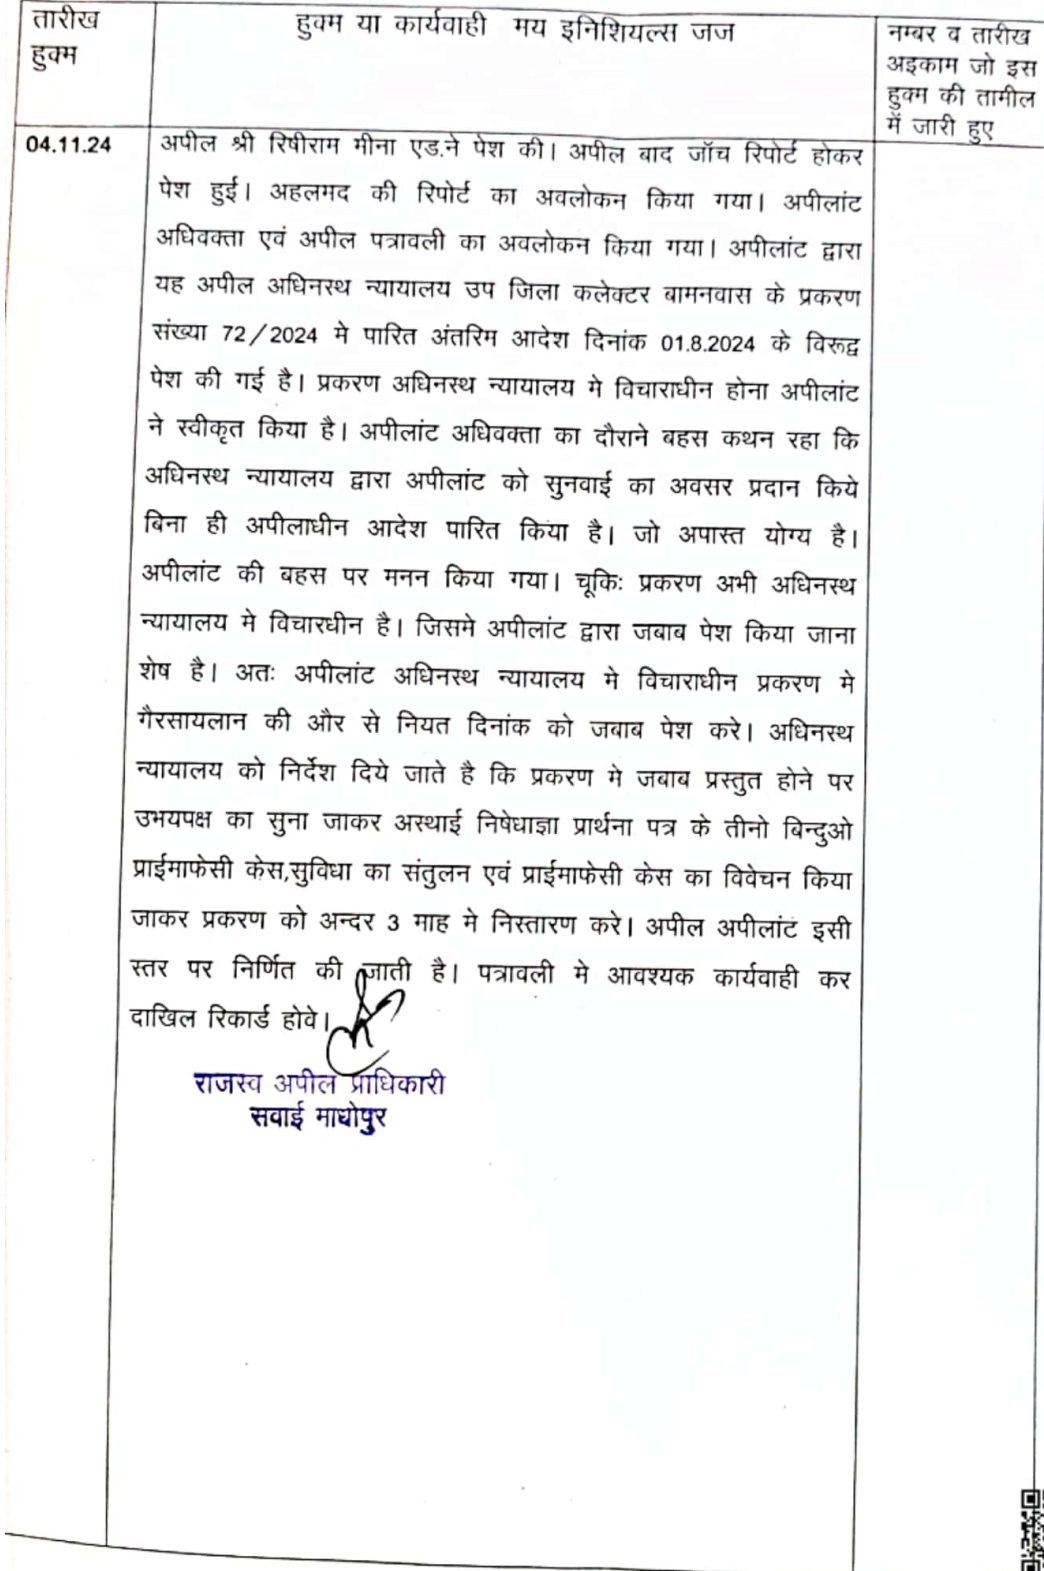 तारीख
हुक्म
हुक्म या कार्यवाही मय इनिशियल्स जज
नम्बर व तारीख
अइकाम जो इस
हुक्म की तामील
में जारी हुए
04.11.24
अपील श्री रिषीराम मीना एड.ने पेश की। अपील बाद जॉच रिपोर्ट होकर
पेश हुई। अहलमद की रिपोर्ट का अवलोकन किया गया। अपीलांट
अधिवक्ता एवं अपील पत्रावली का अवलोकन किया गया। अपीलांट द्वारा
यह अपील अधिनस्थ न्यायालय उप जिला कलेक्टर बामनवास के प्रकरण
संख्या 72/2024 मे पारित अंतरिम आदेश दिनांक 01.8.2024 के विरूद्व
पेश की गई है। प्रकरण अधिनस्थ न्यायालय मे विचाराधीन होना अपीलांट
ने स्वीकृत किया है। अपीलांट अधिवक्ता का दौराने बहस कथन रहा कि
अधिनस्थ न्यायालय द्वारा अपीलांट को सुनवाई का अवसर प्रदान किये
बिना ही अपीलाधीन आदेश पारित किया है। जो अपास्त योग्य है।
अपीलांट की बहस पर मनन किया गया। चूकिः प्रकरण अभी अधिनस्थ
न्यायालय मे विचारधीन है। जिसमे अपीलांट द्वारा जबाब पेश किया जाना
शेष है। अतः अपीलांट अधिनस्थ न्यायालय मे विचाराधीन प्रकरण मे
गैरसायलान की और से नियत दिनांक को जबाब पेश करे। अधिनस्थ
न्यायालय को निर्देश दिये जाते है कि प्रकरण मे जबाब प्रस्तुत होने पर
उभयपक्ष का सुना जाकर अस्थाई निषेधाज्ञा प्रार्थना पत्र के तीनो बिन्दुओ
प्राईमाफेसी केस,सुविधा का संतुलन एवं प्राईमाफेसी केस का विवेचन किया
जाकर प्रकरण को अन्दर 3 माह मे निस्तारण करे। अपील अपीलांट इसी
स्तर पर निर्णित की जाती है। पत्रावली मे आवश्यक कार्यवाही कर
दाखिल रिकार्ड होवे।
राजस्व अपील प्राधिकारी
सवाई माधोपुर